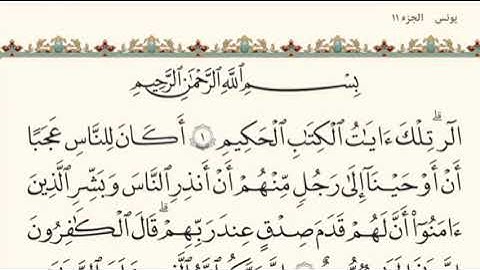 يونس الجزء ١١
بِسْمِ ٱللَّهِ ٱلرَّحْمَٰنِ ٱلرَّحِيمِ
الٓرۚ تِلْكَ ءَايَٰتُ ٱلْكِتَٰبِ ٱلْحَكِيمِ ١ أَكَانَ لِلنَّاسِ عَجَبًا
أَنْ أَوْحَيْنَآ إِلَىٰ رَجُلٍ مِّنْهُمْ أَنْ أَنذِرِ ٱلنَّاسَ وَبَشِّرِ ٱلَّذِينَ
ءَامَنُوٓا۟ أَنَّ لَهُمْ قَدَمَ صِدْقٍ عِندَ رَبِّهِمْۗ قَالَ ٱلْكَٰفِرُونَ